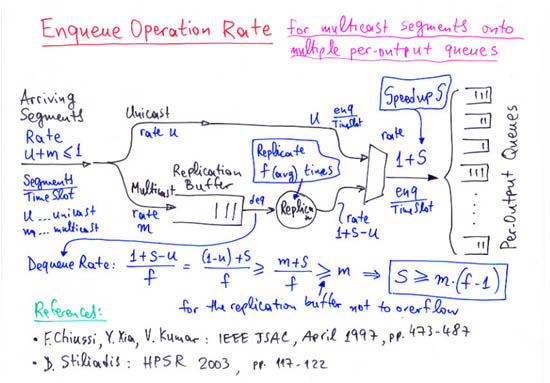 Enqueue Operation Rate for multicast segments onto
multiple per-output queues
Arriving
Segments
Rate
u+m≤1
Segments/
TimeSlot
u ... unicast
m ... multicast
Unicast
rate u
Multicast
rate
m
Replication
Buffer
deq
Replicate
f(avg) times
Replic
u enq/TimeSlot
rate
1+S-u
Speedup S
rate
1+S
enq/TimeSlot
Per-Output Queues
Dequeue Rate: (1+S-u)/f = ((1-u)+S)/f ≥ (m+S)/f ≥ m ⇒ S ≥ m·(f-1)
for the replication buffer not to overflow
References:
• F. Chiussi, Y. Xia, V. Kumar: IEEE JSAC, April 1997, pp. 473-487
• D. Stiliadis: HPSR 2003, pp. 117-122